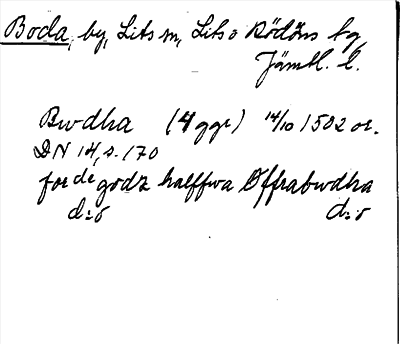 Boda, by, Lits sn, Lits o Rödöns tg
Jämtl. l.
Bwdha (4 ggr) 14/10 1502 or.
DN 14, s. 170
for de godz halffwa Øffrabwdha
d:o d:o